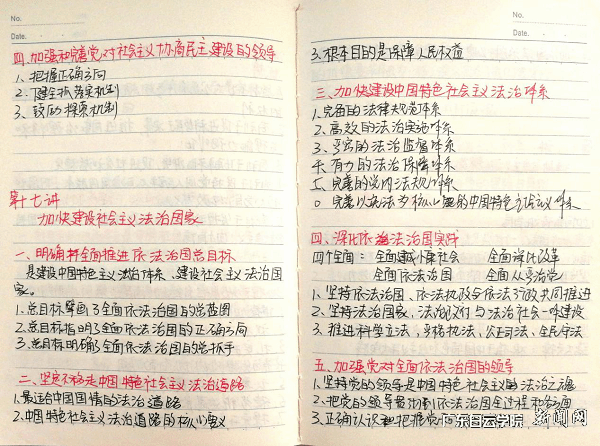 No.
Date.
四、加强和完善党对社会主义协商民主建设的领导
1、把握正确方向
2、健全抓落实机制
3、鼓励探索机制
第十七讲
加快建设社会主义法治国家
一、明确并全面推进依法治国总目标
是建设中国特色主义法治体系、建设社会主义法治国
家。
1.总目标擘画了全面依法治国的总蓝图
2.总目标指明了全面依法治国的正确方向
3.总目标明确了全面依法治国的总抓手
二、坚定不移走中国特色社会主义法治道路
1.最适合中国国情的法治道路
2.中国特色社会主义法治道路的核心要义
No.
Date.
3.根本目的是保障人民权益
三、加快建设中国特色社会主义法治体系
1.完备的法律规范体系
2.高效的法治实施体系
3.严密的法治监督体系
有力的法治保障体系
完善的党内法规体系
完善以宪法为核心的中国特色主义体系
四、深化依法治国实践
四个全面：全面建小康社会 全面深化改革
全面依法治国 全面从严治党
1.坚持依法治国、依法执政与依法行政共同推进
2.坚持法治国家、法治政府与法治社会一体建设
3.推进科学立法、严格执法、公正司法、全民守法
五、加强党对全面依法治国的领导
1.坚持党的领导是中国特色社会主义法治之魂
2.把党的领导贯彻到依法治国全过程和各方面
3.正确认识把握党
广东白云学院 新闻网